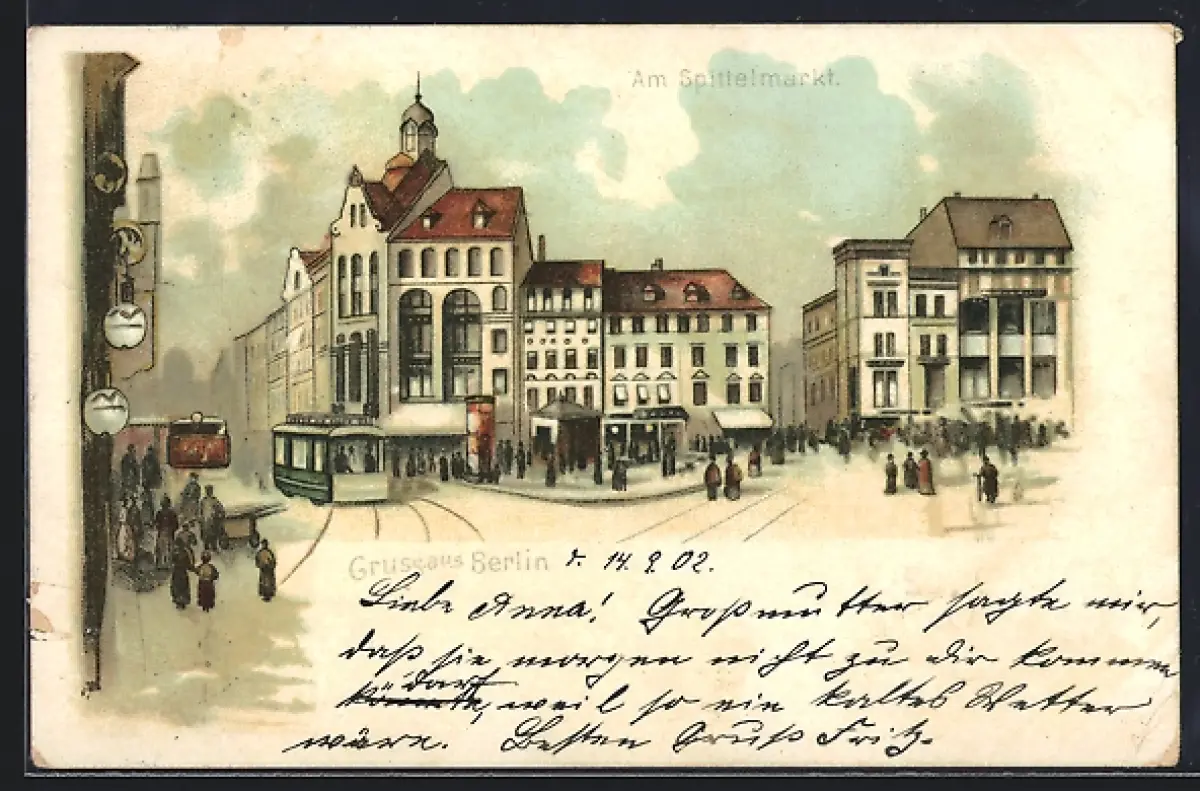 Am Spittelmarkt.
Gruss aus Berlin d. 14.9.02.
Liebe Anna! Großmutter sagte mir,
daß sie morgen nicht zu dir kommen
darf
könnte, weil so ein kaltes Wetter
wäre. Besten Gruß Fritz.